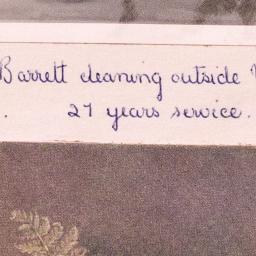 Barrett cleaning outside
. 27 years service.